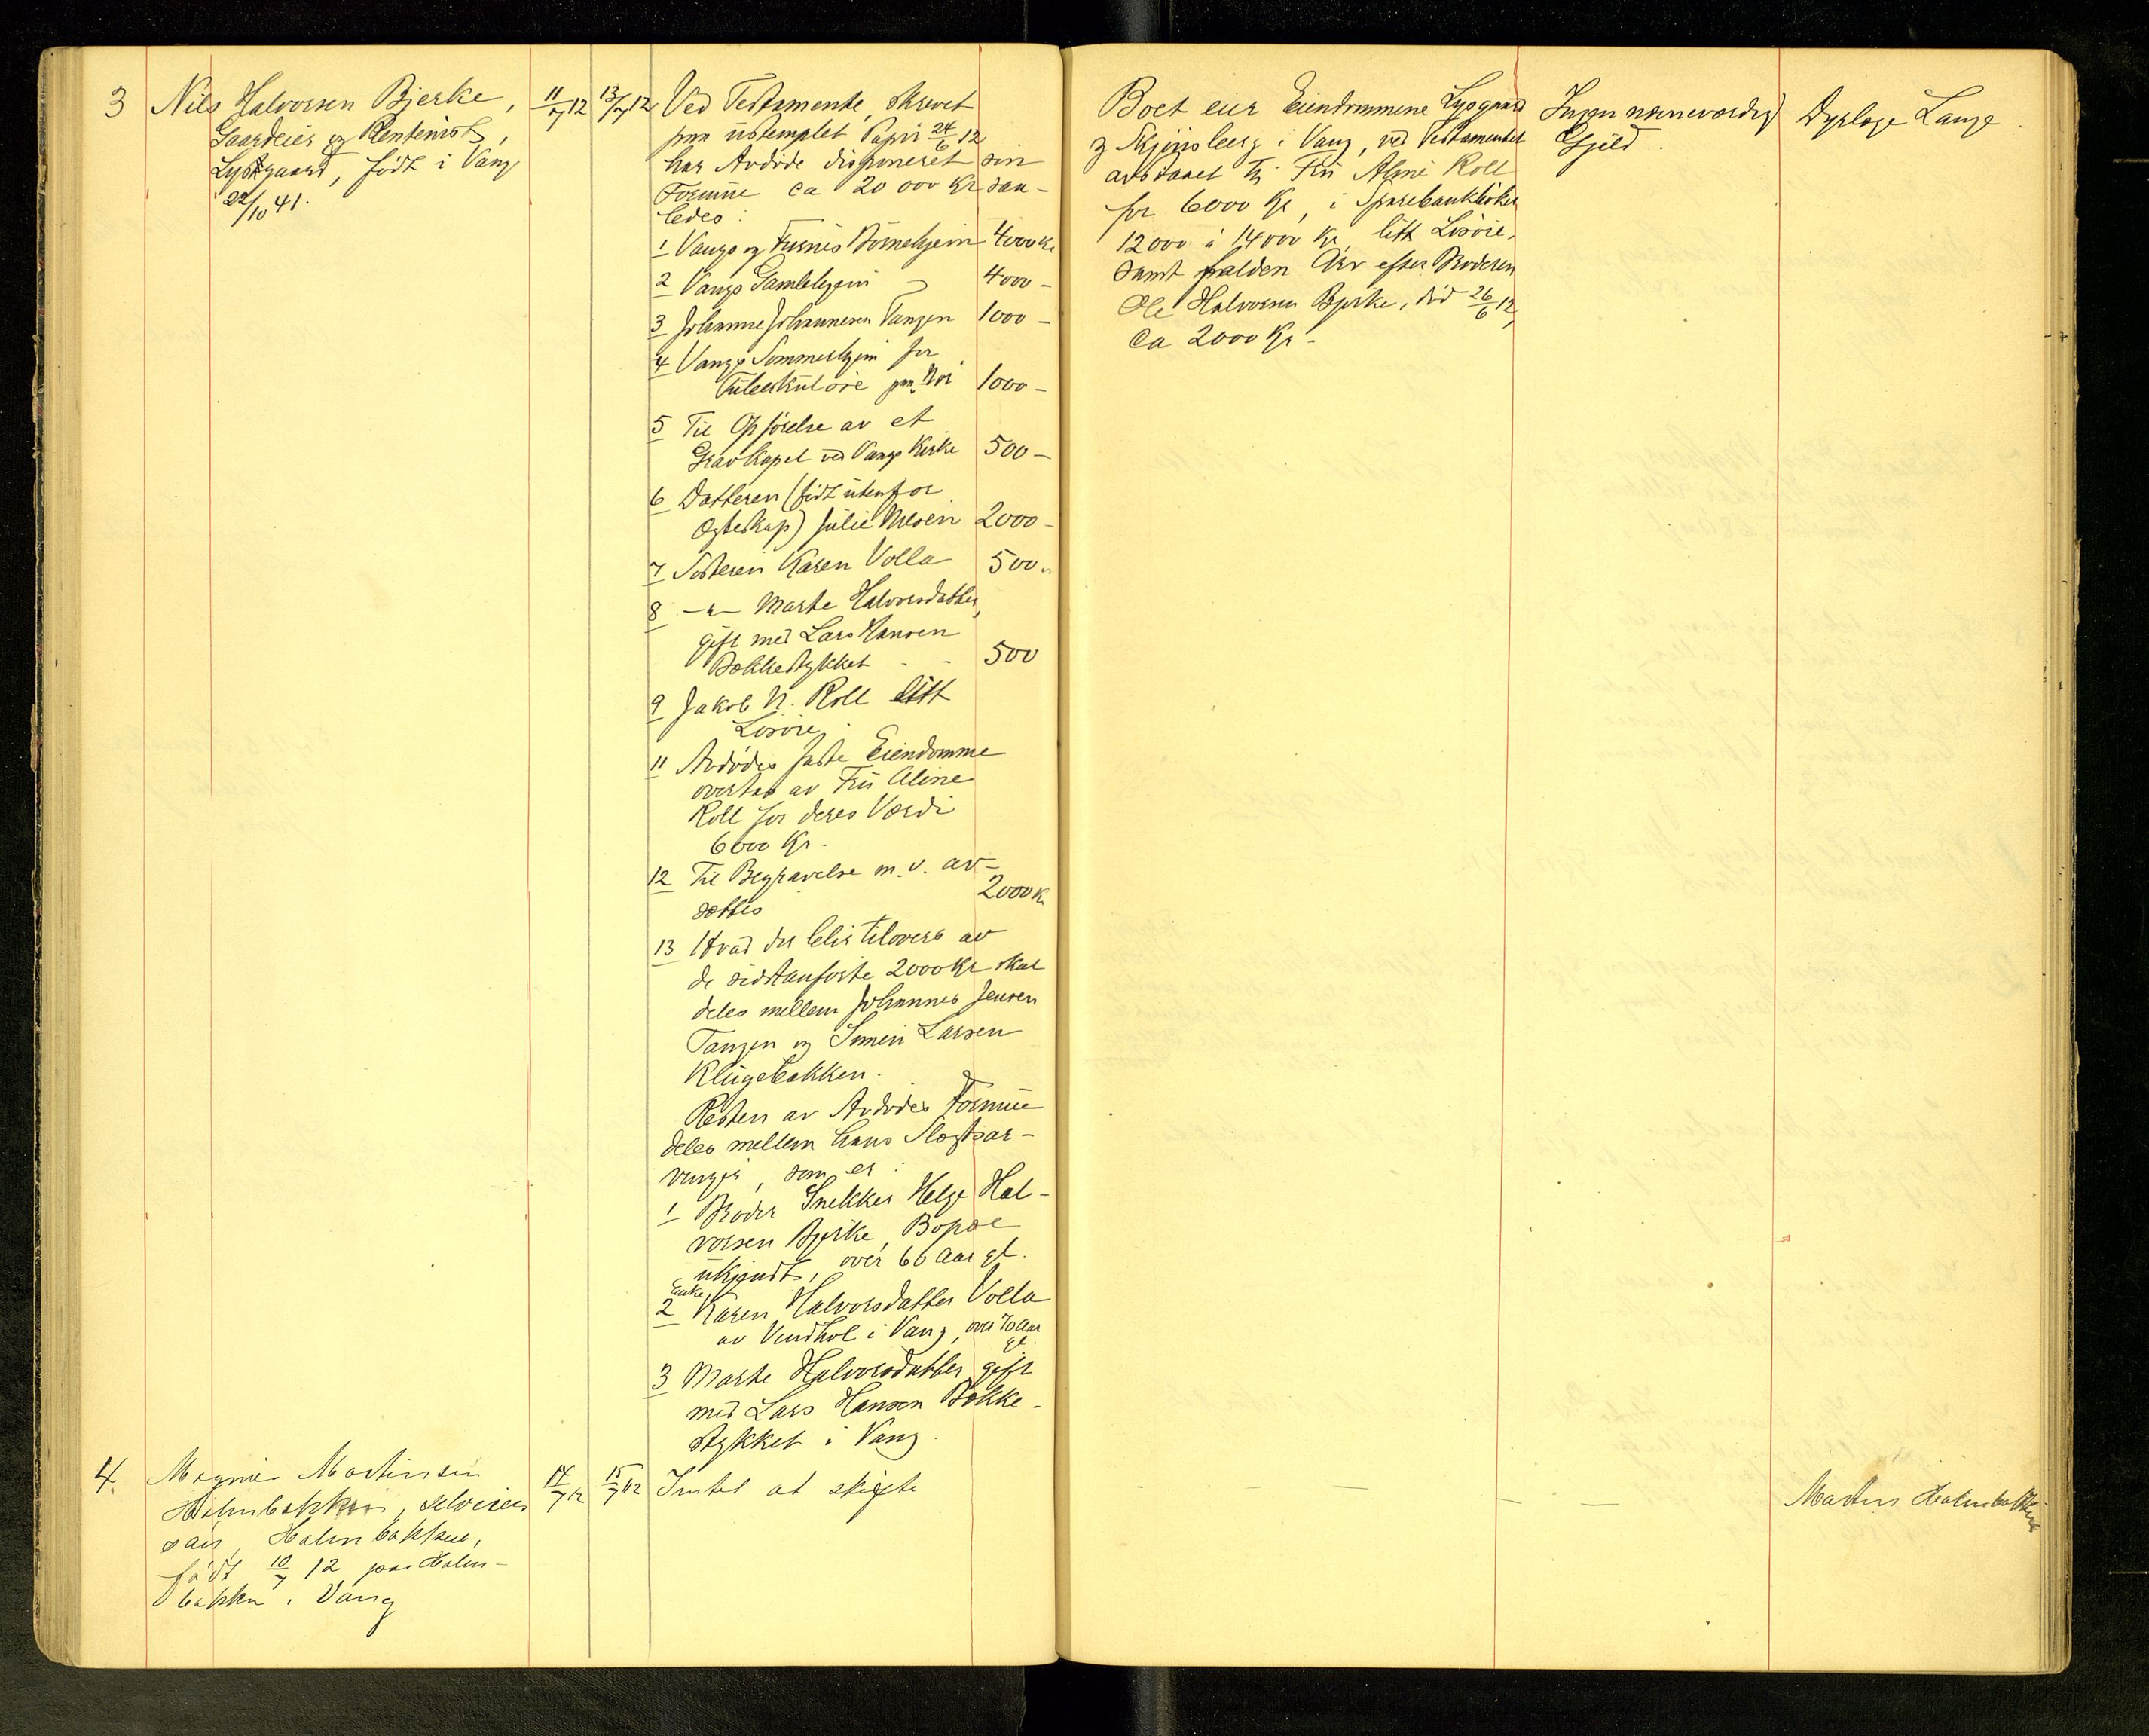 3 Nils Halvorsen Bjerke,
Gaardeier og Rentenist,
Lysgaard, født i Vang
22/10 41.
11/7 12
13/7 12
Ved Testamente, skrevet
paa ustemplet Papir 24/6 12
har Avdøde disponeret sin
Formue ca 20 000 Kr saa-
ledes:
1 Vangs og Furnes Børnehjem 4000 Kr
2 Vangs Gamlehjem 4000 -
3 Johanne Johannesen Vangen 1000 -
4 Vangs Sommerhjem for
Tuberkuløse paa Nor 1000 -
5 Til Opførelse av et
Gravkapel ved Vangs Kirke 500 -
6 Datteren (født utenfor
Egteskap) Julie Nilsen 2000 -
7 Søsteren Karen Volla 500 "
8 -"- Marte Halvorsdatter,
gift med Lars Hansen
Bækkestykket - - 500
9 Jakob N. Roll litt
Løsøre.
11 Avdødes faste Eiendomme
overtas av Fru Aline
Roll for deres Værdi
6000 Kr.
12 Til Begravelse m.v. av-
sættes 2000 Kr
13 Hvad der blir tilovers av
de sidstanførte 2000 Kr skal
deles mellem Johannes Jensen
Tangen og Simen Larsen
Klugebakken.
Resten av Avdødes Formue
deles mellem hans Slegtsar-
vinger, som er:
1 Broder Snekker Helge Hal-
vorsen Bjerke, Bopæl
ukjendt, over 60 Aar gl.
Enke,
2 Karen Halvorsdatter Volla
av Vindhol i Vang, over 70 Aar
gl.
3 Marte Halvorsdatter gift
med Lars Hansen Bække-
stykket i Vang.
Boet eier Eiendommene Lysgaard
og Skjønsberg i Vang, ved Testamentet
avstaaet til Fru Aline Roll
for 6000 Kr, i Sparebankbøker
12000 à 14000 Kr, litt Løsøre,
samt falden Arv efter Broderen
Ole Halvorsen Bjerke, død 26/6 12,
ca 2000 Kr.
Ingen nævneværdig
Gjæld.
Dyrlæge Lange.
4. Magnus Martinsen
Holmbakken, selveier
søn, Holmbakken,
født 10/7 12 paa Holm-
bakken i Vang
14/7 12
15/7 12
Intet at skifte
- - - -
Martin Holmbakken